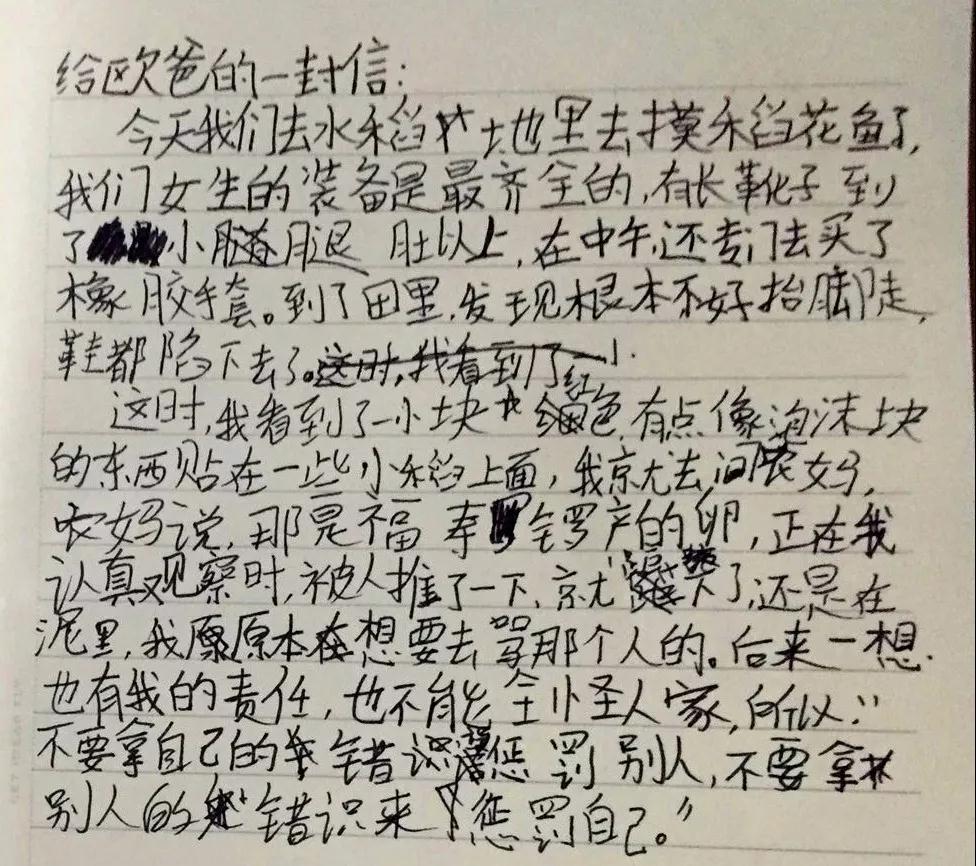 给欧爸的一封信:
今天我们去水稻土地里去摸禾稻花鱼了,
我们女生的装备是最齐全的,有长靴子到
了小腿肚以上,在中午,还专门去买了
橡胶手套。到了田里,发现根本不好抬脚走,
鞋都陷下去了。这时,我看到了一小
这时,我看到了一小块红色,有点像泡沫块
的东西贴在一些小稻上面,我就去问农妈,
农妈说,那是福寿螺产的卵,正在我
认真观察时,被人推了一下,就了,还是在
泥里,我原原本在想要去骂那个人的。后来一想
也有我的责任,也不能全怪人家,所以:“
不要拿自己的错识惩罚别人,不要拿
别人的错识来惩罚自己。”